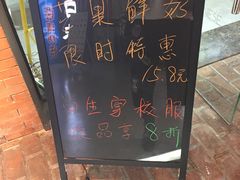 果鲜奶
限时特惠
15.8元
生穿校服
品享8折